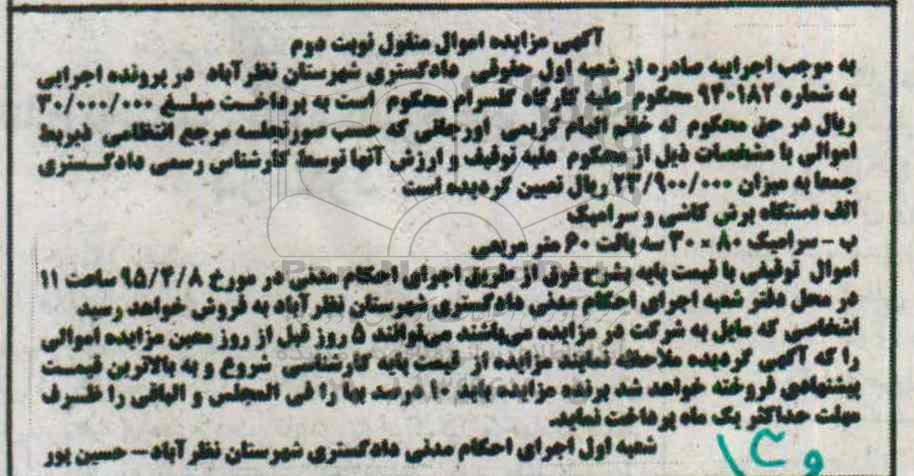 آگهی مزایده اموال منقول نوبت دوم
به موجب اجراییه صادره از شعبه اول حقوقی دادگستری شهرستان نظرآباد در پرونده اجرایی
به شماره ۹۴۰۱۸۲ محکوم علیه کارگاه گلسرام محکوم است به پرداخت مبلغ ۳۰/۰۰۰/۰۰۰
ریال در حق محکوم له خانم الهام کریمی اورجانی که حسب صورتجلسه مرجع انتظامی ذیربط
اموالی با مشخصات ذیل از محکوم علیه توقیف و ارزش آنها توسط کارشناس رسمی دادگستری
جمعا به میزان ۲۳/۹۰۰/۰۰۰ ریال تعیین گردیده است
الف دستگاه برش کاشی و سرامیک
ب - سرامیک ۸۰ × ۳۰ سه پالت ۶۰ متر مربعی
اموال توقیفی با قیمت پایه بشرح فوق از طریق اجرای احکام مدنی در مورخ ۹۵/۳/۸ ساعت ۱۱
در محل دفتر شعبه اجرای احکام مدنی دادگستری شهرستان نظرآباد به فروش خواهد رسید
اشخاصی که مایل به شرکت در مزایده می‌باشند می‌توانند ۵ روز قبل از روز معین مزایده اموالی
را که آگهی گردیده ملاحظه نمایند مزایده از قیمت پایه کارشناسی شروع و به بالاترین قیمت
پیشنهادی فروخته خواهد شد برنده مزایده باید ۱۰ درصد بها را فی المجلس و الباقی را ظرف
مهلت حداکثر یک ماه پرداخت نماید.
شعبه اول اجرای احکام مدنی دادگستری شهرستان نظرآباد – حسین پور